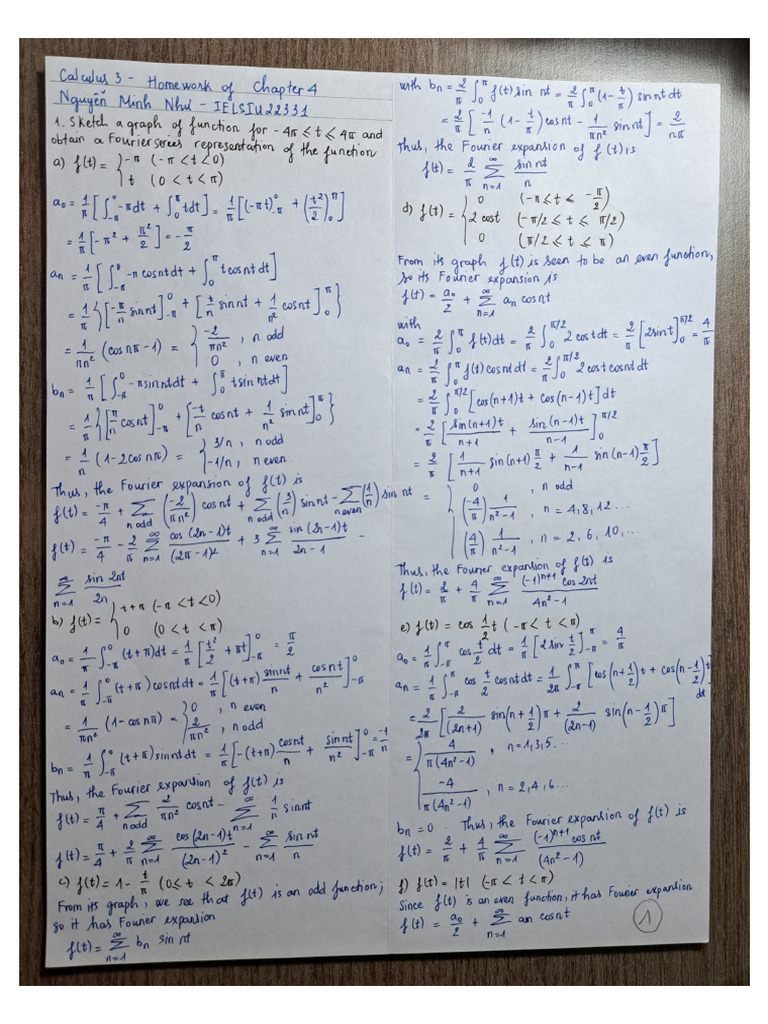 Calculus 3 - Homework of Chapter 4
Nguyễn Minh Như - IELSIU22331
1. Sketch a graph of function for -4π ≤ t ≤ 4π and
obtain a Fourier serees representation of the function
a) f(t) = { -π (-π < t < 0)
t (0 < t < π)
a₀ = 1/π [∫_{-π}^{0} -π dt + ∫_{0}^{π} t dt] = 1/π [(-πt)_{-π}^{0} + (t²/2)_{0}^{π}]
= 1/π [-π² + π²/2] = -π/2
aₙ = 1/π [∫_{-π}^{0} -π cos nt dt + ∫_{0}^{π} t cos nt dt]
= 1/π {[-π/n sin nt]_{-π}^{0} + [t/n sin nt + 1/n² cos nt]_{0}^{π}}
= 1/(πn²) (cos nπ - 1) = { -2/(πn²), n odd
0, n even
bₙ = 1/π [∫_{-π}^{0} -π sin nt dt + ∫_{0}^{π} t sin nt dt]
= 1/π {[π/n cos nt]_{-π}^{0} + [-t/n cos nt + 1/n² sin nt]_{0}^{π}}
= 1/n (1 - 2cos nπ) = { 3/n, n odd
-1/n, n even
Thus, the Fourier expansion of f(t) is
f(t) = -π/4 + ∑_{n odd} (-2/(πn²)) cos nt + ∑_{n odd} (3/n) sin nt - ∑_{n even} (1/n) sin nt
f(t) = -π/4 - 2/π ∑_{n=1}^{∞} cos(2n-1)t/(2π-1)² + 3 ∑_{n=1}^{∞} sin(2n-1)t/(2n-1) -
∑_{n=1}^{∞} sin 2nt/2n
b) f(t) = { t+π (-π < t < 0)
0 (0 < t < π)
a₀ = 1/π ∫_{-π}^{0} (t+π)dt = 1/π [t²/2 + πt]_{-π}^{0} = π/2
aₙ = 1/π ∫_{-π}^{0} (t+π) cos nt dt = 1/π [(t+π) sin nt/n + cos nt/n²]_{-π}^{0}
= 1/(πn²) (1 - cos nπ) = { 0, n even
2/(πn²), n odd
bₙ = 1/π ∫_{-π}^{0} (t+π) sin nt dt = 1/π [-(t+π) cos nt/n + sin nt/n²]_{-π}^{0} = -1/n
Thus, the Fourier expansion of f(t) is
f(t) = π/4 + ∑_{n odd} 2/(πn²) cos nt - ∑_{n=1}^{∞} 1/n sin nt
f(t) = π/4 + 2/π ∑_{n=1}^{∞} cos(2n-1)t/(2n-1)² - ∑_{n=1}^{∞} sin nt/n
c) f(t) = 1 - t/π (0 ≤ t < 2π)
From its graph, we see that f(t) is an odd function;
so it has Fourier expansion
f(t) = ∑_{n=1}^{∞} bₙ sin nt
with bₙ = 2/π ∫_{0}^{π} f(t) sin nt = 2/π ∫_{0}^{π} (1 - t/π) sin nt dt
= 2/π [-1/n (1 - t/π) cos nt - 1/(πn²) sin nt] = 2/(nπ)
Thus, the Fourier expansion of f(t) is
f(t) = 2/π ∑_{n=1}^{∞} sin nt/n
d) f(t) = { 0 (-π ≤ t ≤ -π/2)
2 cos t (-π/2 ≤ t ≤ π/2)
0 (π/2 ≤ t ≤ π)
From its graph f(t) is seen to be an even function,
so its Fourier expansion is
f(t) = a₀/2 + ∑_{n=1}^{∞} aₙ cos nt
with
a₀ = 2/π ∫_{0}^{π} f(t)dt = 2/π ∫_{0}^{π/2} 2 cos t dt = 2/π [2 sin t]_{0}^{π/2} = 4/π
aₙ = 2/π ∫_{0}^{π} f(t) cos nt dt = 2/π ∫_{0}^{π/2} 2 cos t cos nt dt
= 2/π ∫_{0}^{π/2} [cos(n+1)t + cos(n-1)t] dt
= 2/π [sin(n+1)t/(n+1) + sin(n-1)t/(n-1)]_{0}^{π/2}
= 2/π [1/(n+1) sin(n+1) π/2 + 1/(n-1) sin(n-1) π/2]
= { 0, n odd
(-4/π) 1/(n²-1), n = 4, 8, 12...
(4/π) 1/(n²-1), n = 2, 6, 10,...
Thus, the Fourier expansion of f(t) is
f(t) = 2/π + 4/π ∑_{n=1}^{∞} (-1)^{n+1} cos 2nt/(4n²-1)
e) f(t) = cos 1/2 t (-π < t < π)
a₀ = 1/π ∫_{-π}^{π} cos t/2 dt = 1/π [2 sin t/2]_{-π}^{π} = 4/π
aₙ = 1/π ∫_{-π}^{π} cos t/2 cos nt dt = 1/2π ∫_{-π}^{π} [cos(n+1/2)t + cos(n-1/2)t] dt
= 2/2π [2/(2n+1) sin(n+1/2)π + 2/(2n-1) sin(n-1/2)π]
= { 4/(π(4n²-1)), n = 1, 3, 5...
-4/(π(4n²-1)), n = 2, 4, 6...
bₙ = 0. Thus, the Fourier expansion of f(t) is
f(t) = 2/π + 4/π ∑_{n=1}^{∞} (-1)^{n+1} cos nt/(4n²-1)
f) f(t) = |t| (-π < t < π)
Since f(t) is an even function, it has Fourier expansion
f(t) = a₀/2 + ∑_{n=1}^{∞} an cos nt
1